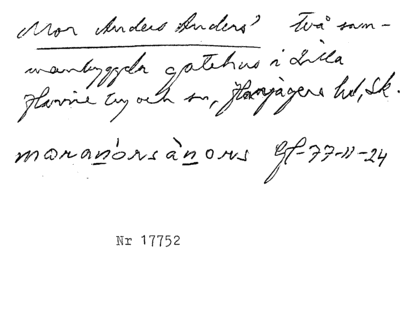 Mor Anders Anders' Två sam-
manbyggda gatehus i Lilla
Harrie by och sn, Harjagers hd, Sk.
moranórsànors Gf-77-11-24
Nr 17752